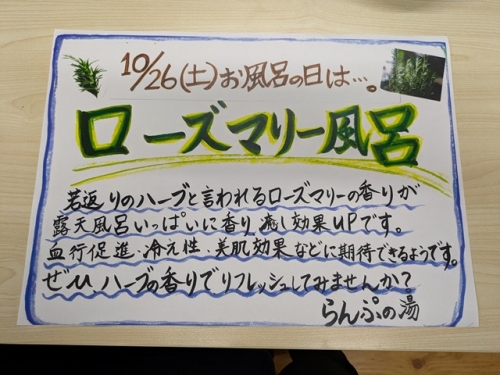 10/26(土)お風呂の日は…。
ローズマリー風呂
若返りのハーブと言われるローズマリーの香りが
露天風呂いっぱいに香り癒し効果UPです。
血行促進・冷え性・美肌効果などに期待できるようです。
ぜひハーブの香りでリフレッシュしてみませんか?
らんぷの湯